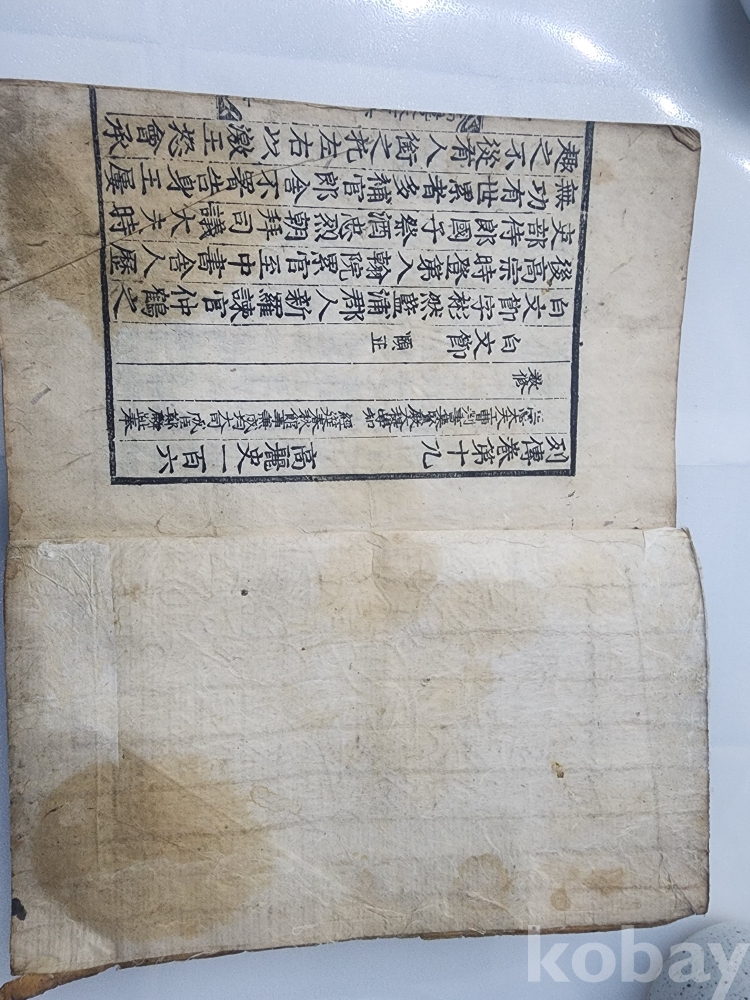 列傳卷第十九 高麗史一百六
正憲大夫工曹判書集賢殿大提學知
經筵春秋館事兼成均大司成臣鄭麟趾奉
敎修
白文節 頤正
白文節字彬然藍浦郡人新羅諫官仲鶴之
後高宗時登第入翰院累官至中書舍人歷
吏部侍郎國子祭酒忠烈朝拜司議大夫時
無功有世累者多補官郎舍不署告身王屢
趣之不從有人銜之托左右以激王怒會承
kobay